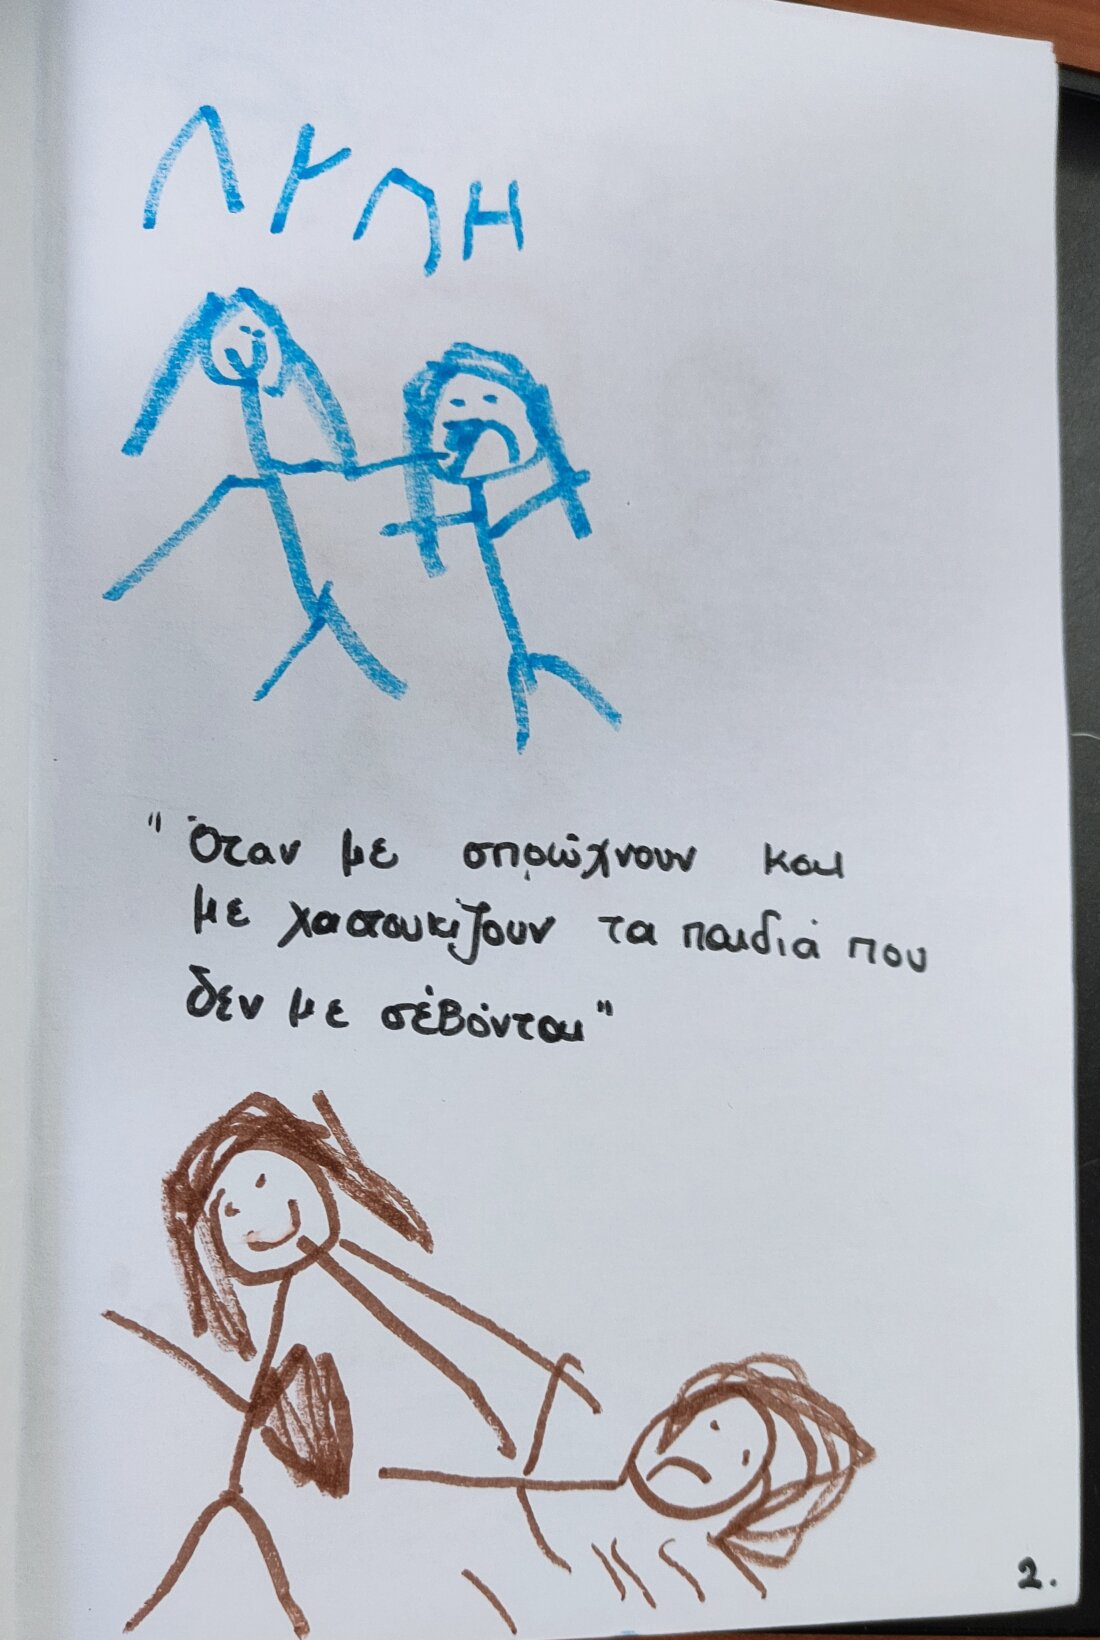 ΛΥΠΗ
"Όταν με σπρώχνουν και
με χαστουκίζουν τα παιδιά που
δεν με σέβονται"
2.